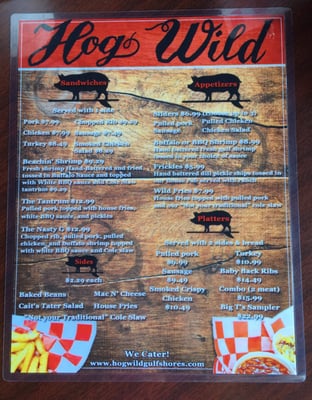 Hog Wild
Sandwiches
Served with 1 side
Pork $7.99 Chopped Rib $9.29
Chicken $7.99 Sausage $7.49
Turkey $8.49 Smoked Chicken
Salad $8.29
Beachin' Shrimp $9.29
Fresh shrimp Hand-Battered and fried,
tossed in Buffalo Sauce and topped
with White BBQ sauce and Cole slaw
The Tantrum $12.99
Pulled pork topped with home fries,
white BBQ sauce, and pickles
The Nasty G $12.99
Chopped rib, pulled pork, pulled
chicken, and buffalo shrimp topped
with white BBQ sauce and Cole slaw
Sides
$2.29 each
Baked Beans Mac N' Cheese
Cait's Tater Salad House Fries
"Not your Traditional" Cole Slaw
Appetizers
Sliders $6.99
Pulled pork Pulled Chicken
Sausage Chicken Salad
Buffalo or BBQ Shrimp $8.99
Hand battered fresh gulf shrimp
tossed in your choice of sauce
Frickles $5.99
Hand battered dill pickle chips tossed in
Wild Fries $7.99
House fries topped with pulled pork
and our "Not your traditional" cole slaw
Platters
Served with 2 sides & bread
Pulled pork Turkey
$9.99 $10.99
Sausage Baby Back Ribs
$9.49 $14.49
Smoked Crispy Combo (2 meat)
Chicken $15.99
$10.49 Big T's Sampler
$22.99
We Cater!
www.hogwildgulfshores.com